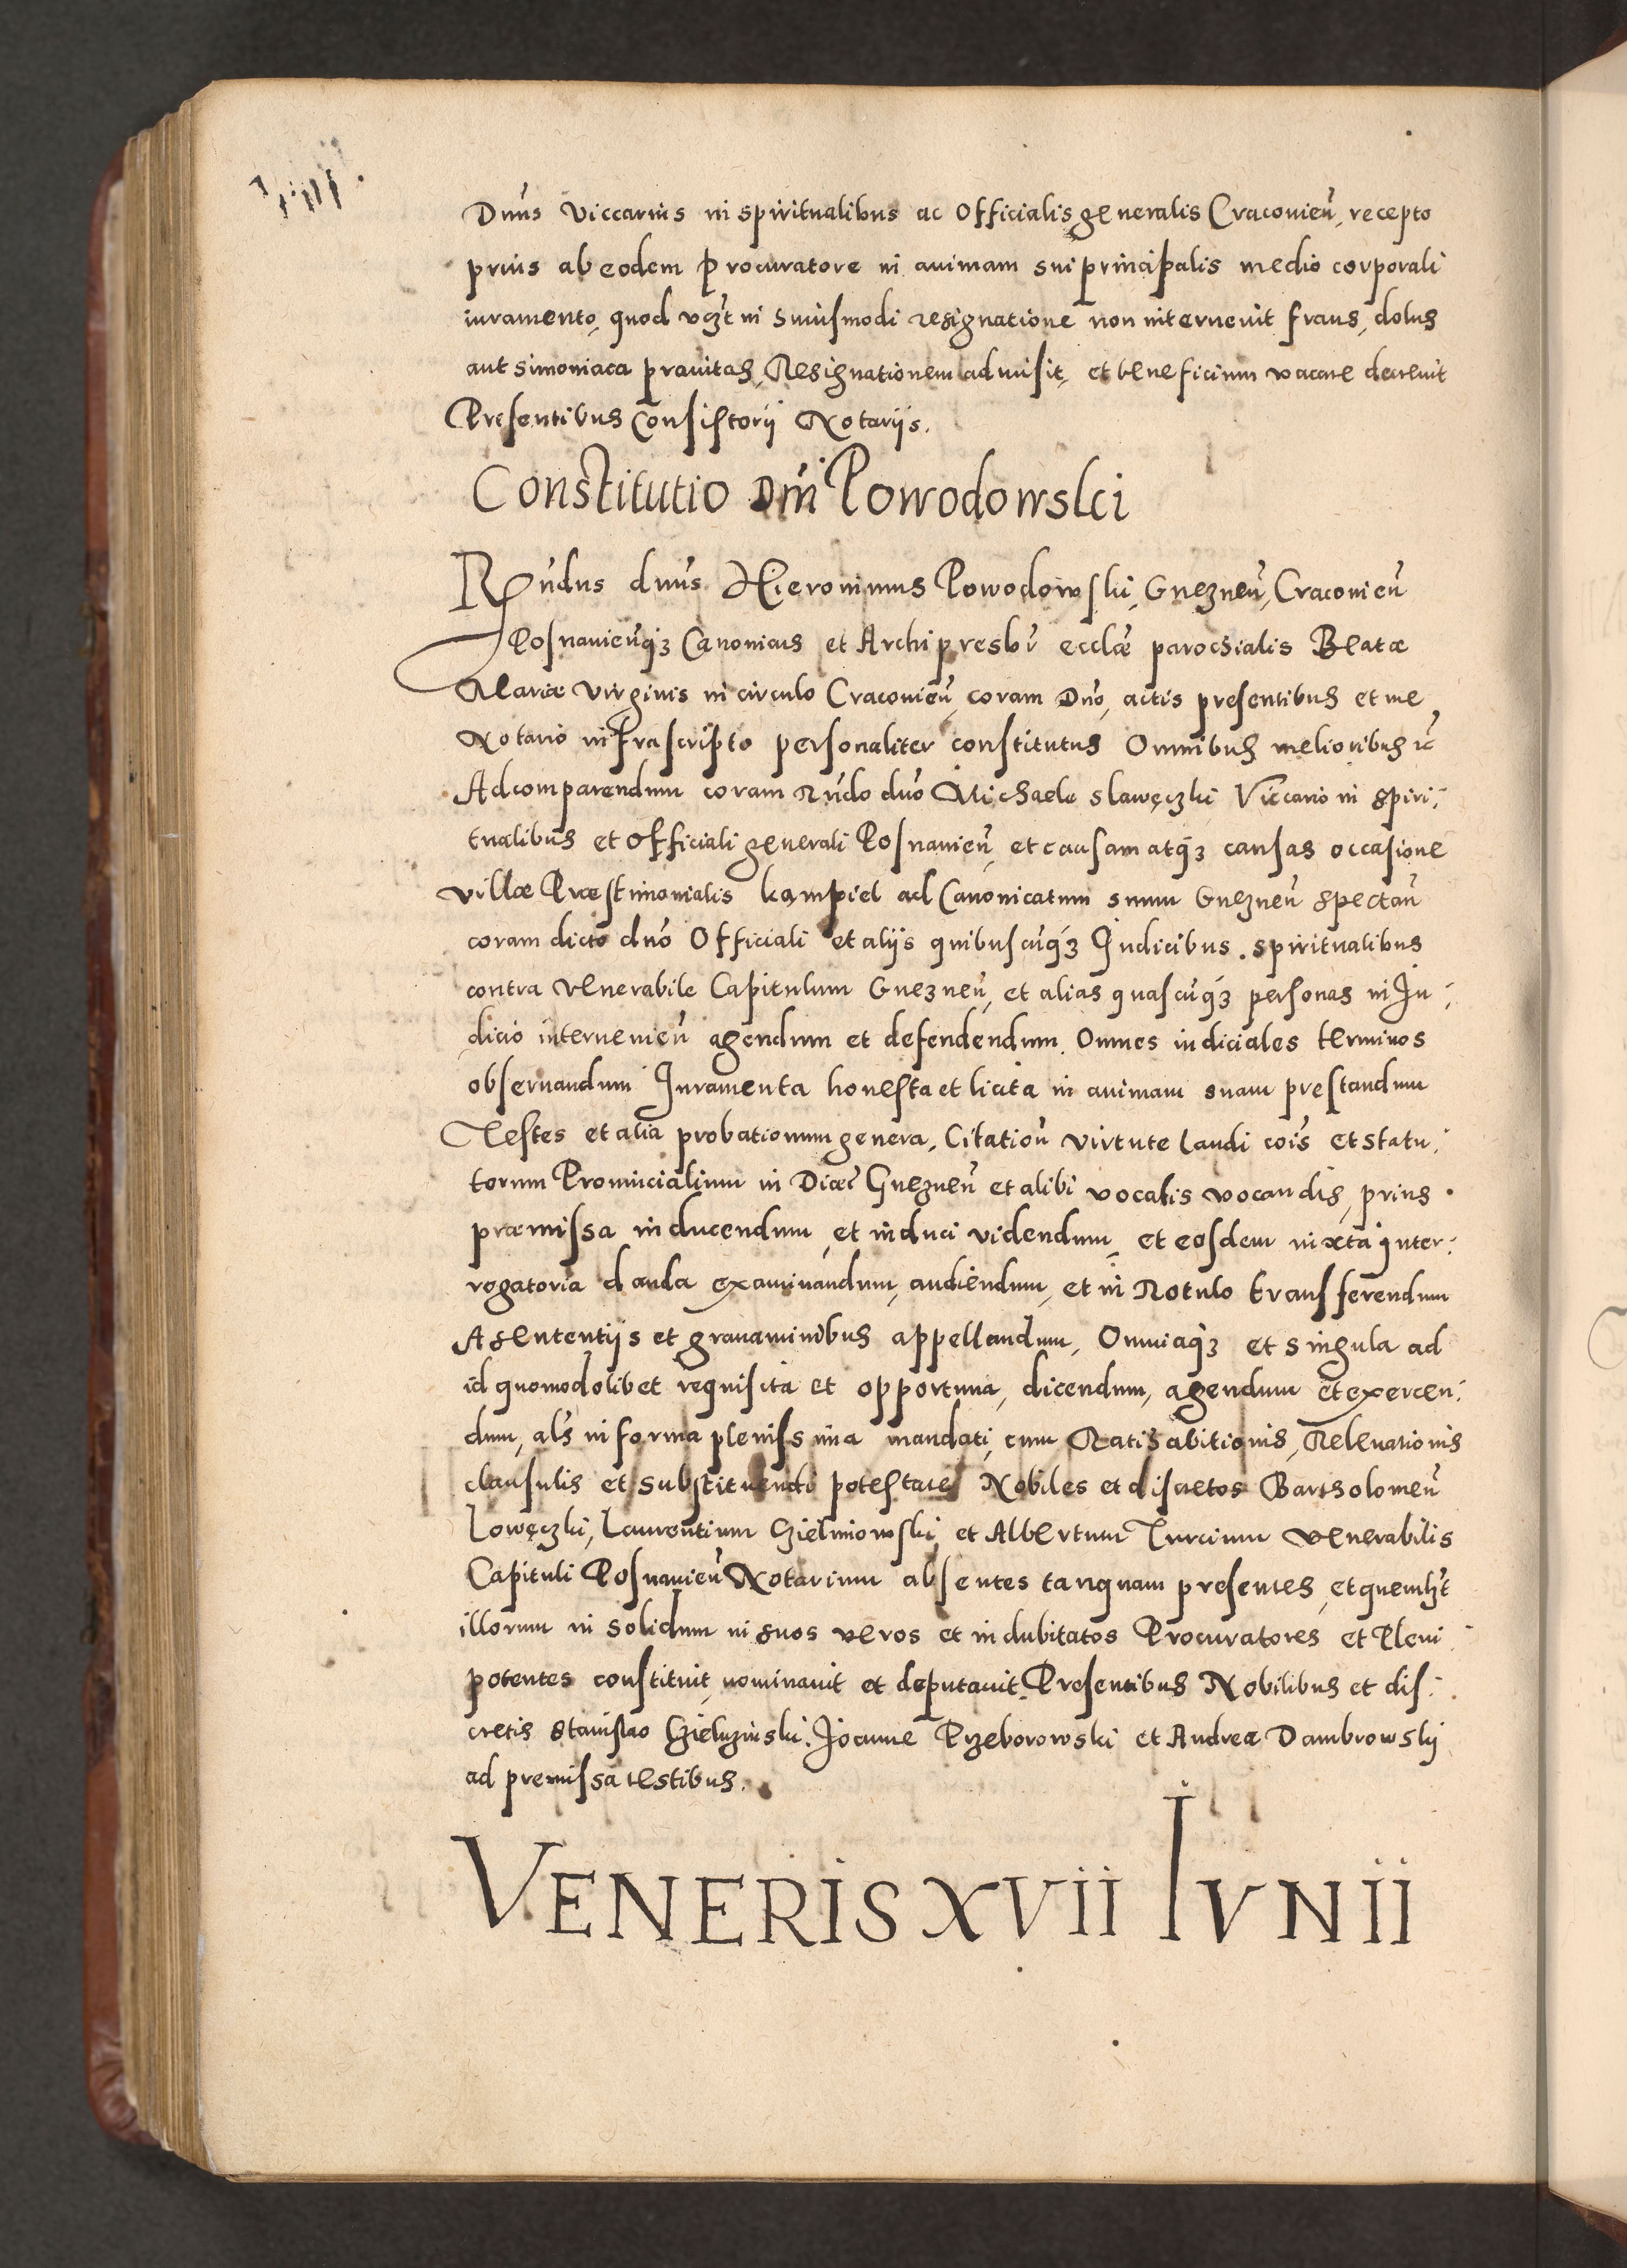 Dnus Viccarius in spiritualibus ac Officialis generalis Cracovien, recepto
prius ab eodem Procuratore in animam sui principalis medio corporali
iuramento, quod vczt in huiusmodi resignatione non intervenit fraus, dolus
aut simoniaca pravitas, Resignationem admisit, et beneficium vacare decrevit
Presentibus Consistorij Notarijs.
Constitutio Dni Powodowskj
Rndus dnus Hieronimus Powodowski, Gneznen, Cracovien
Posnavienq3 Canonicus et Archipresbr ecclæ parochialis Beatæ
Mariæ Virginis in circulo Cracovien, coram Dno, actis presentibus et me
Notario infrascripto personaliter constitutus Omnibus melioribus rc
Ad comparendum coram Rndo dno Michaele Slawęczki Viccario in spiri:
tualibus et Officiali generali Posnavien, et causam atq3 causas occasione
villæ Præstimonialis kąmpiel ad Canonicatum suum Gneznen spectan
coram dicto dno Officiali et alijs quibuscuq3 Judicibus spiritualibus
contra Venerabile Capitulum Gneznen, et alias quascuq3 personas in Ju:
dicio intervenien agendum et defendendum. Omnes iudiciales terminos
observandum Juramenta honesta et licita in animam suam prestandum
Testes et alia probationum genera, Citation virtute laudi cois et statu:
torum Provincialium in Diœc Gneznen et alibi vocatis vocandis, prius
præmissa inducendum, et induci videndum, et eosdem iuxta inter:
rogatoria danda examinandum, audiendum, et in Rotulo transferendum
A sententijs et gravaminibus appellandum, Omniaq3 et singula ad
id quomodolibet requisita et opportuna, dicendum, agendum et exercen:
dum, als in forma plenissima mandati, cum Ratihabitionis, Relevationis
clausulis et substituendi potestate Nobiles et discretos Bartholomeu
Lowęczki, Laurentium Gielniowski, et Albertum Turcium Venerabilis
Capituli Posnavien Notarium absentes tanquam presentes, et quemlzt
illorum in solidum in suos veros et indubitatos Procuratores et Pleni:
potentes constituit, nominavit et deputavit. Presentibus Nobilibus et dis:
cretis Stanislao Gielczinski, Joanne Przeborowski et Andrea Dambrowskj
ad premissa testibus.
VENERIS XVII IVNII